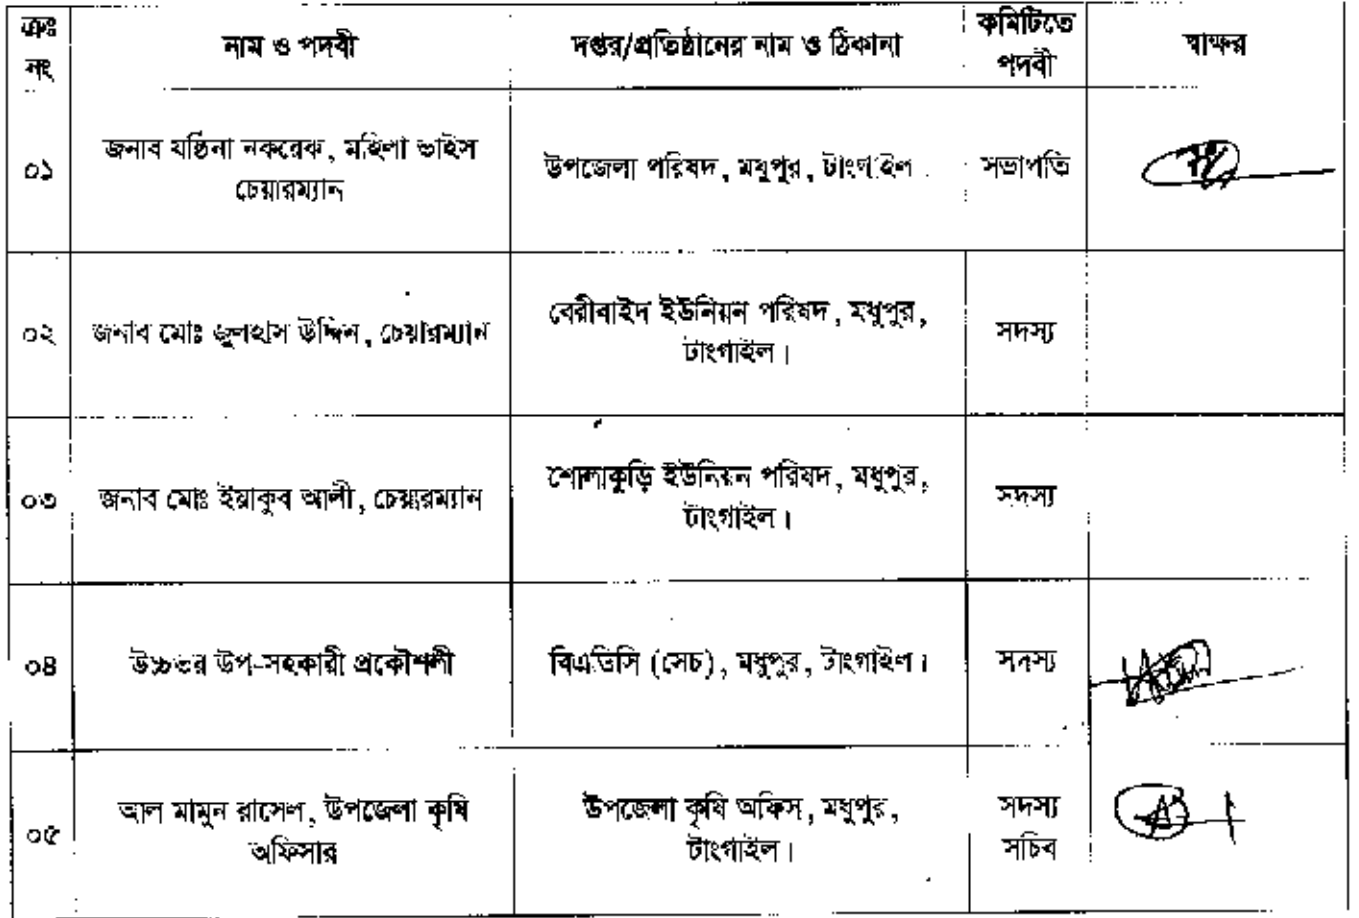 ক্রঃ নং
নাম ও পদবী
দপ্তর/প্রতিষ্ঠানের নাম ও ঠিকানা
কমিটিতে পদবী
স্বাক্ষর
০১
জনাব যষ্ঠিনা নকরেক, মহিলা ভাইস
চেয়ারম্যান
উপজেলা পরিষদ, মধুপুর, টাংগাইল
সভাপতি
০২
জনাব মোঃ জুলহাস উদ্দিন, চেয়ারম্যান
বেরীবাইদ ইউনিয়ন পরিষদ, মধুপুর,
টাংগাইল।
সদস্য
০৩
জনাব মোঃ ইয়াকুব আলী, চেয়ারম্যান
শোলাকুড়ি ইউনিয়ন পরিষদ, মধুপুর,
টাংগাইল।
সদস্য
০৪
উচ্চতর উপ-সহকারী প্রকৌশলী
বিএডিসি (সেচ), মধুপুর, টাংগাইল।
সদস্য
০৫
আল মামুন রাসেল, উপজেলা কৃষি
অফিসার
উপজেলা কৃষি অফিস, মধুপুর,
টাংগাইল।
সদস্য
সচিব